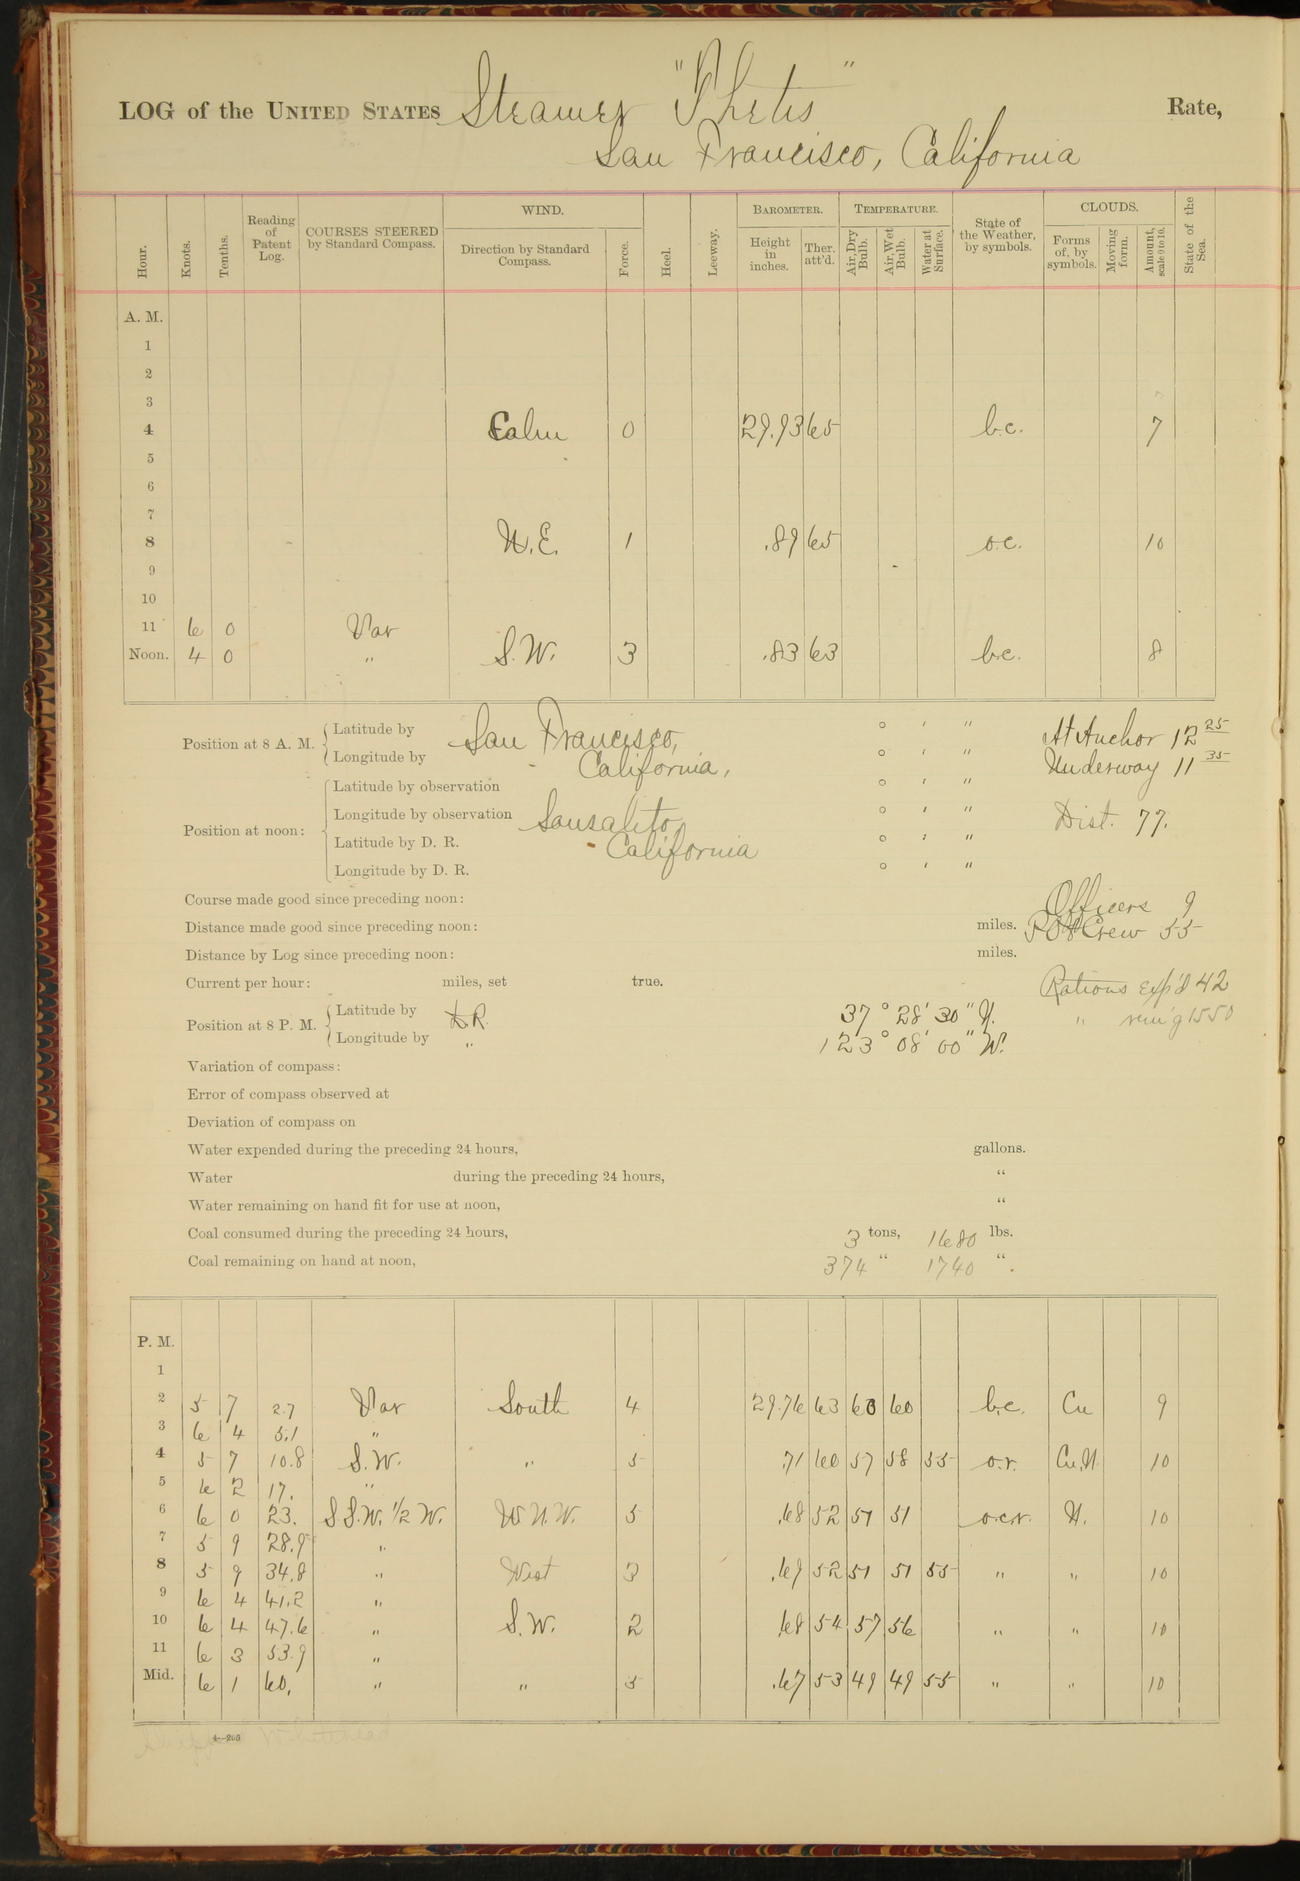 LOG of the UNITED STATES Steamer "Thetis" Rate,
San Francisco, California
Hour. Knots. Tenths. Reading of Patent Log. COURSES STEERED by Standard Compass. WIND. Direction by Standard Compass. Force. Heel. Leeway. BAROMETER. Height in inches. Ther. att'd. TEMPERATURE. Air, Dry Bulb. Air, Wet Bulb. Water at Surface. State of the Weather, by symbols. CLOUDS. Forms of, by symbols. Moving form. Amount, scale 0 to 10. State of the Sea.
A. M.
1
2
3
4 Calm 0 29.93 65 b.c. 7
5
6
7
8 N.E. 1 .89 65 o.c. 10
9
10
11 6 0 Var
Noon. 4 0 " S.W. 3 .83 63 b.c. 8
Position at 8 A. M. Latitude by San Francisco, ° ′ ″ At Anchor 12 25
Longitude by California, ° ′ ″ Underway 11 35
Position at noon: Latitude by observation ° ′ ″
Longitude by observation Sausalito, ° ′ ″ Dist. 77.
Latitude by D. R. California ° ′ ″
Longitude by D. R. ° ′ ″
Course made good since preceding noon: Officers 9
Distance made good since preceding noon: miles. Crew 55
Distance by Log since preceding noon: miles.
Current per hour: miles, set true. Rations exp'd 42
Position at 8 P. M. Latitude by D.R. 37° 28′ 30″ N. " rem'g 1550
Longitude by " 123° 08′ 00″ W.
Variation of compass:
Error of compass observed at
Deviation of compass on
Water expended during the preceding 24 hours, gallons.
Water during the preceding 24 hours, "
Water remaining on hand fit for use at noon, "
Coal consumed during the preceding 24 hours, 3 tons, 1680 lbs.
Coal remaining on hand at noon, 374 " 1740 "
P. M.
1
2 5 7 2.7 Var South 4 29.76 63 60 60 b.c. Cu 9
3 6 4 5.1 "
4 5 7 10.8 S.W. " 5 .71 60 57 58 55 o.r. Cu.N. 10
5 6 2 17. "
6 6 0 23. S.S.W. 1/2 W. W.N.W. 5 .68 52 51 51 o.c.r. N. 10
7 5 9 28.9 "
8 5 9 34.8 " West 3 .69 52 51 51 55 " " 10
9 6 4 41.2 "
10 6 4 47.6 " S.W. 2 .68 54 57 56 " " 10
11 6 3 53.9 "
Mid. 6 1 60. " " 5 .67 53 49 49 55 " " 10
4—203